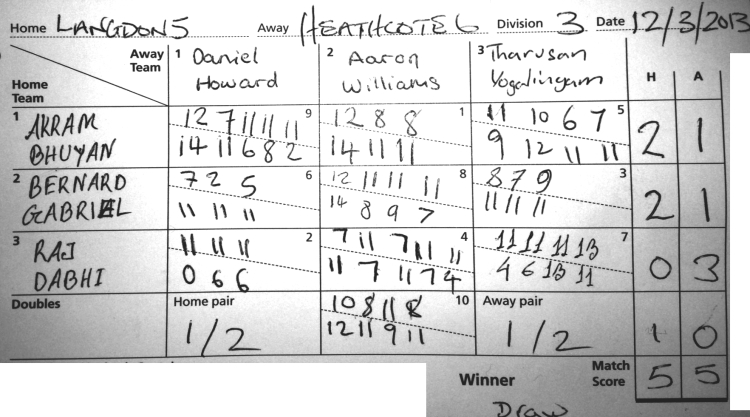 Home LANGDON 5 Away HEATHCOTE 6 Division 3 Date 12/3/2013
Away Team
Home Team
1 Daniel Howard
2 Aaron Williams
3 Tharusan Yogalingam
H A
1 AKRAM BHUYAN
12 7 11 11 11 9
14 11 6 8 2
12 8 8 1
14 11 11
11 10 6 7 5
9 12 11 11
2 1
2 BERNARD GABRIEL
7 2 5 6
11 11 11
12 11 11 11 8
14 8 9 7
8 7 9 3
11 11 11
2 1
3 RAJ DABHI
11 11 11 2
0 6 6
7 11 7 11 11 4
11 7 11 7 4
11 11 11 13 7
4 6 13 11
0 3
Doubles
Home pair
1/2
10 8 11 8 10
12 11 9 11
Away pair
1/2
1 0
Winner
Match Score 5 5
Draw